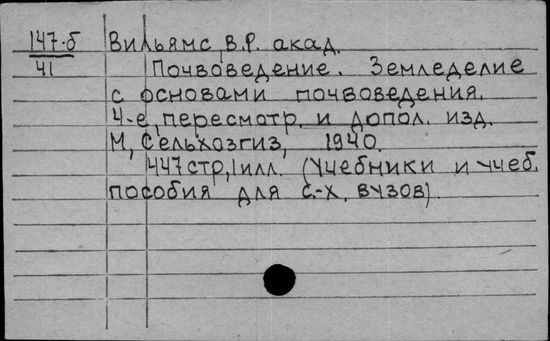 147-б Вильямс, В.Р. акад.
41 Почвоведение. Земледелие
с основами почвоведения.
4-е, пересмотр. и допол. изд.
М, Сельхозгиз, 1940.
447стр, илл. (Учебники и учеб.
пособия для с.-х. вузов).